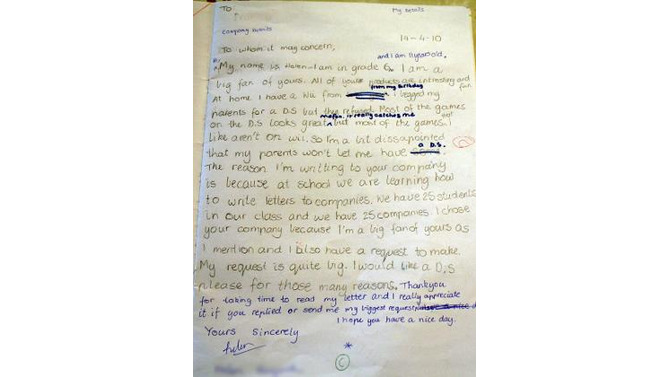 To
My Details
Company Details
14-4-10
To whom it may concern,
and I am 11 years old.
My name is Helen - I am in grade 6. I am a
big fan of yours. All of your products are intresting and fun
from my birthday
At home I have a Wii from I begged my
parents for a D.S but they refused. Most of the games
on the D.S looks great but most of the games I
really catches me eye!
like aren't on wii. So I'm a bit dissapointed
a D.S.
that my parents won't let me have
The reason I'm writting to your company
is because at school we are learning how
to write letters to companies. We have 25 students
in our class and we have 25 companies. I chose
your company because I'm a big fan of yours as
I mention and I also have a request to make.
My request is quite big. I would like a D.S
please for those many reasons. Thankyou
for taking time to read my letter and I really appreciate
it if you replied or send me my biggest request
I hope you have a nice day.
Yours Sincerely
C